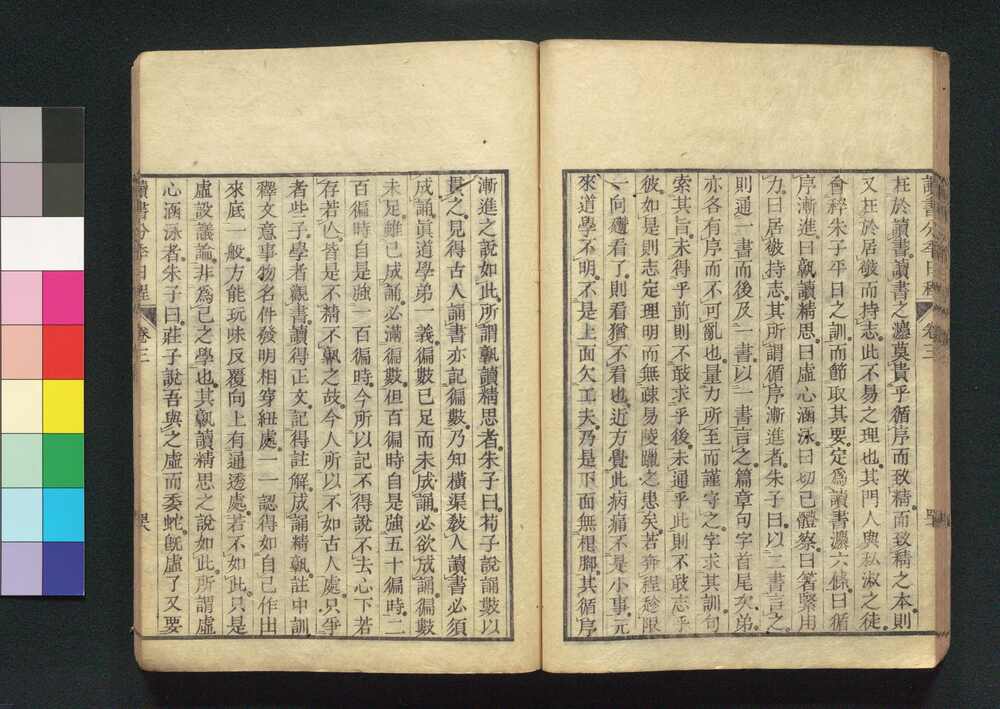 讀書分年日程 卷三
枉於讀書讀書之灋莫貴乎循序而致精而致精之本則
又枉於居敬而持志此不易之理也其門人與私淑之徒
會稡朱子平日之訓而節取其要定爲讀書灋六條曰循
序漸進曰孰讀精思曰虛心涵泳曰切己體察曰箸緊用
力曰居敬持志其所謂循序漸進者朱子曰以二書言之
則通一書而後及一書以一書言之篇章句字首尾次弟
亦各有序而不可亂也量力所至而謹守之字求其訓句
索其旨未得乎前則不敢求乎後未通乎此則不敢志乎
彼如是則志定理明而無疎易陵躐之患矣若奔程趁限
一向趲看了則看猶不看也近方覺此病痛不是小事元
來道學不明不是上面欠工夫乃是下面無根腳其循序
漸進之說如此所謂孰讀精思者朱子曰荀子說誦數以
貫之見得古人誦書亦記徧數乃知橫渠敎人讀書必須
成誦眞道學弟一義徧數已足而未成誦必欲成誦徧數
未足雖已成誦必滿徧數但百徧時自是強五十徧時二
百徧時自是強一百徧時今所以記不得說不去心下若
存若亾皆是不精不孰之故今人所以不如古人處只爭
者些子學者觀書讀得正文記得註解成誦精孰註中訓
釋文意事物名件發明相穿紐處一一認得如自己作出
來底一般方能玩味反覆向上有通透處若不如此只是
虛設議論非爲己之學也其孰讀精思之說如此所謂虛
心涵泳者朱子曰莊子說吾與之虛而委蛇旣虛了又要
讀書分年日程 卷三